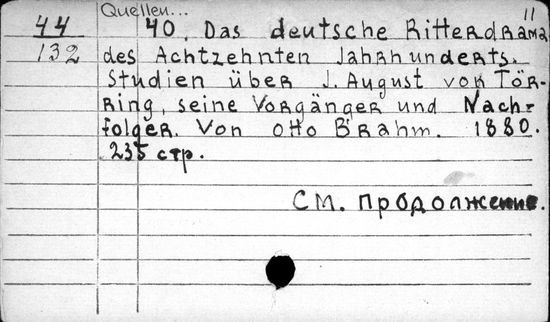 Quellen...
11
44 40. Das deutsche Ritterdrama
132 des Achtzehnten Jahrhunderts.
Studien über J. August von Tör-
ring, seine Vorgänger und Nach-
folger. Von Otto Brahm. 1880.
235 стр.
См. продолжение.